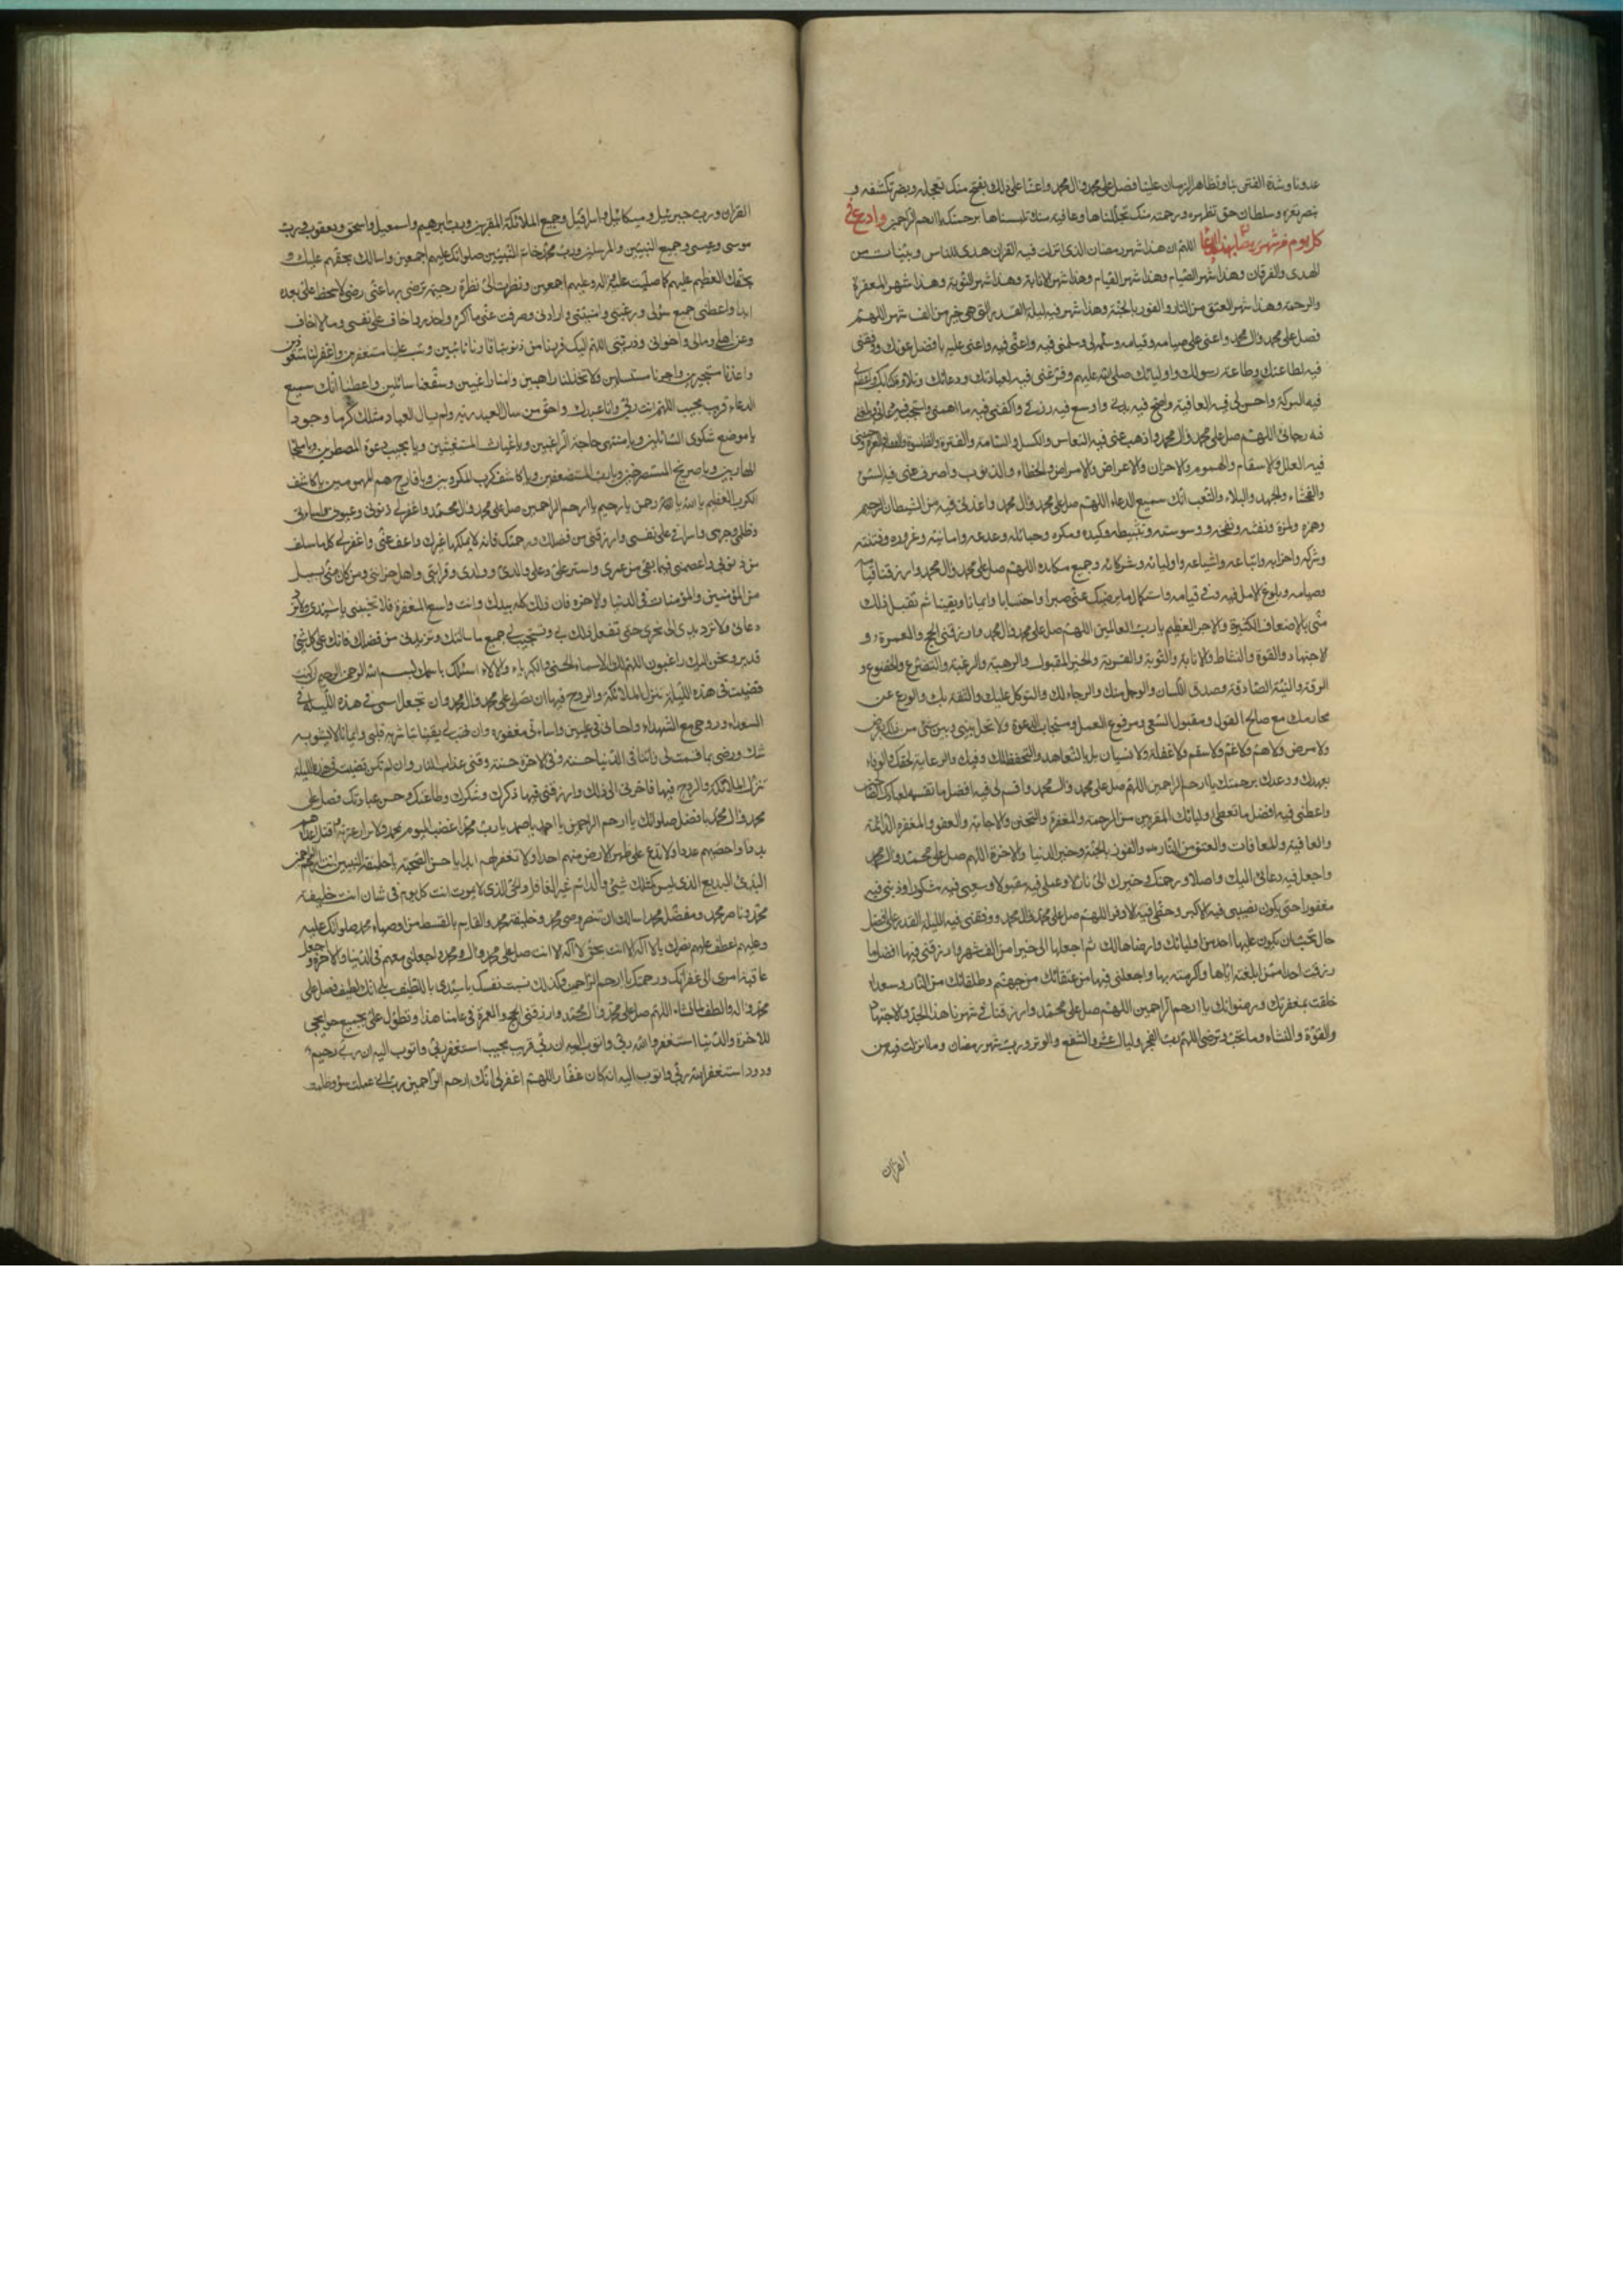 عدونا وشدة الفتن بنا وتظاهر الزمان علينا فصل على محمد وال محمد واعنا على ذلك بفتح منك تعجله وبضر تكشفه و
نصر تعزه وسلطان حق تظهره ورحمة منك تجللناها وعافية منك تلبسناها برحمتك يا ارحم الراحمين وادع في
كل يوم من شهر رمضان بهذا الدعا اللهم ان هذا شهر رمضان الذى انزلت فيه القران هدى للناس وبينات من
الهدى والفرقان وهذا شهر الصيام وهذا شهر القيام وهذا شهر الانابة وهذا شهر التوبة وهذا شهر المغفرة
والرحمة وهذا شهر العتق من النار والفوز بالجنة وهذا شهر فيه ليلة القدر التى هى خير من الف شهر اللهم
فصل على محمد وال محمد واعنى على صيامه وقيامه وسلمه لى وسلمنى فيه واعنى فيه واعنى عليه بافضل عونك ووفقنى
فيه لطاعتك وطاعة رسولك واوليائك صلى الله عليهم وفرغنى فيه لعبادتك ودعائك وتلاوة كتابك واعظم
فيه البركة واحسن لى فيه العافية واصح فيه بدنى واوسع فيه رزقى واكفنى فيه ما اهمنى واستجب فيه دعائى وبلغنى
فيه رجائى اللهم صل على محمد وال محمد واذهب عنى فيه النعاس والكسل والسامة والفترة والقسوة والغفلة والغرة وجنبنى
فيه العلل والاسقام والهموم والاحزان والاعراض والامراض والخطاء والذنوب واصرف عنى فيه السوء
والفحشاء والجهد والبلاء والتعب انك سميع الدعاء اللهم صل على محمد وال محمد واعذنى فيه من الشيطان الرجيم
وهمزه ولمزه ونفثه ونفخه ووسوسته وتثبيطه وكيده ومكره وحبائله وخدعه وامانيه وغروره وفتنته
وشركه واحزابه واتباعه واشياعه واوليائه وشركائه وجميع مكائده اللهم صل على محمد وال محمد وارزقنا قيامه
وصيامه وبلوغ الامل فيه وفى قيامه واستكمال ما يرضيك عنى صبرا واحتسابا وايمانا ويقينا ثم تقبل ذلك
منى بالاضعاف الكثيرة والاجر العظيم يا رب العالمين اللهم صل على محمد وال محمد وارزقنى الحج والعمرة و
الاجتهاد والقوة والنشاط والانابة والتوبة والقربة والخير المقبول والرهبة والرغبة والتضرع والخضوع و
الرقة والنية الصادقة وصدق اللسان والوجل منك والرجاء لك والتوكل عليك والثقة بك والورع عن
محارمك مع صالح القول ومقبول السعى ومرفوع العمل ومستجاب الدعوة ولا تحل بينى وبين شى من ذلك بعرض
ولا مرض ولا هم ولا غم ولا سقم ولا غفلة ولا نسيان بل بالتعاهد والتحفظ لك وفيك والرعاية لحقك والوفاء
بعهدك ووعدك برحمتك يا ارحم الراحمين اللهم صل على محمد وال محمد واقسم لى فيه افضل ما تقسمه لعبادك الصالحين
واعطنى فيه افضل ما تعطى اوليائك المقربين من الرحمة والمغفرة والتحنن والاجابة والعفو والمغفرة الدائمة
والعافية والمعافات والعتق من النار والفوز بالجنة وخير الدنيا والاخرة اللهم صل على محمد وال محمد
واجعل فيه دعائى اليك واصلا ورحمتك وخيرك الى نازلا وعملى فيه مقبولا وسعيى فيه مشكورا وذنبى فيه
مغفورا حتى يكون نصيبى فيه الاكبر وحظى فيه الاوفر اللهم صل على محمد وال محمد ووفقنى فيه لليلة القدر على افضل
حال تحب ان يكون عليها احد من اوليائك وارضاها لك ثم اجعلها لى خيرا من الف شهر وارزقنى فيها افضل ما
رزقت احدا ممن بلغته اياها واكرمته بها واجعلنى فيها من عتقائك من جهنم وطلقائك من النار وسعداء
خلقك بمغفرتك ورضوانك يا ارحم الراحمين اللهم صل على محمد وال محمد وارزقنا فى شهرنا هذا الجد والاجتهاد
والقوة والنشاط وما تحب وترضى اللهم رب الفجر وليال عشر والشفع والوتر ورب شهر رمضان وما انزلت فيه من
القران
القران ورب جبرئيل وميكائيل واسرافيل وجميع الملائكة المقربين ورب ابرهيم واسمعيل واسحق ويعقوب ورب
موسى وعيسى وجميع النبيين والمرسلين ورب محمد خاتم النبيين صلواتك عليهم اجمعين واسالك بحقهم عليك و
بحقك العظيم عليهم لما صليت عليه واله وعليهم اجمعين ونظرت الى نظرة رحيمة ترضى بها عنى رضى لا سخط على بعده
ابدا واعطنى جميع سؤلى ورغبتى وامنيتى وارادتى وصرفت عنى ما اكره واحذر واخاف على نفسى وما لا اخاف
وعن اهلى ومالى واخوانى وذريتى اللهم اليك فررنا من ذنوبنا فاونا تائبين وتب علينا مستغفرين واغفر لنا متعوذين
واعذنا مستجيرين واجرنا مستسلمين ولا تخذلنا راهبين وامنا راغبين وشفعنا سائلين واعطنا انك سميع
الدعاء قريب مجيب اللهم انت ربى وانا عبدك واحق من سال العبد ربه ولم يسال العباد مثلك كرما وجودا
يا موضع شكوى السائلين ويا منتهى حاجة الراغبين ويا غياث المستغيثين ويا مجيب دعوة المضطرين ويا ملجا
الهاربين ويا صريخ المستصرخين ويا رب المستضعفين ويا كاشف كرب المكروبين ويا فارج هم المهمومين يا كاشف
الكرب العظيم يا الله يا رحمن يا رحيم يا ارحم الراحمين صل على محمد وال محمد واغفر لى ذنوبى وعيوبى واسائتى
وظلمى وجرمى واسرافى على نفسى وارزقنى من فضلك ورحمتك فانه لا يملكها غيرك واعف عنى واغفر لى كلما سلف
من ذنوبى واعصمنى فيما بقى من عمرى واستر على وعلى والدى وولدى وقرابتى واهل حزانتى ومن كان منى بسبيل
من المؤمنين والمؤمنات فى الدنيا والاخرة فان ذلك كله بيدك وانت واسع المغفرة فلا تخيبنى يا سيدى ولا ترد
دعائى ولا ترد يدى الى نحرى حتى تفعل ذلك بى وتستجيب لى جميع ما سالتك وتزيدنى من فضلك فانك على كل شئ
قدير ونحن اليك راغبون اللهم لك الاسماء الحسنى والكبرياء والالاء اسئلك باسمك بسم الله الرحمن الرحيم ان كنت
قضيت فى هذه الليلة تنزل الملائكة والروح فيها ان تصلى على محمد وال محمد وان تجعل اسمى فى هذه الليلة فى
السعداء وروحى مع الشهداء واحسانى فى عليين واساءتى مغفورة وان تهب لى يقينا تباشر به قلبى وايمانا لا يشوبه
شك ورضى بما قسمت لى واتنا فى الدنيا حسنة وفى الاخرة حسنة وقنى عذاب النار وان لم تكن قضيت فى هذه الليلة
تنزل الملائكة والروح فيها فاخرنى الى ذلك وارزقنى فيها ذكرك وشكرك وطاعتك وحسن عبادتك وصل على
محمد وال محمد بافضل صلواتك يا ارحم الراحمين يا احد يا صمد يا رب محمد اغضب اليوم لمحمد ولابرار عترته واقتل اعداءهم
بددا واحصهم عددا ولا تدع على ظهر الارض منهم احدا ولا تغفر لهم ابدا يا حسن الصحبة يا خليفة النبيين انت ارحم الراحمين
البدئ البديع الذى ليس كمثلك شئ والدائم غير الغافل والحى الذى لا يموت انت كل يوم فى شان انت خليفة
محمد وناصر محمد ومفضل محمد اسالك ان تنصر وصى محمد وخليفة محمد والقايم بالقسط من اوصياء محمد صلواتك عليه
وعليهم اعطف عليهم نصرك يا لا اله الا انت بحق لا اله الا انت صل على محمد وال محمد واجعلنى معهم فى الدنيا والاخرة واجعل
عاقبة امرى الى غفرانك ورحمتك يا ارحم الراحمين وكذلك نسبت نفسك يا سيدى باللطيف بلى انك لطيف فصل على
محمد واله والطف لما تشاء اللهم صل على محمد وال محمد وارزقنى الحج والعمرة فى عامنا هذا وتطول على بجميع حوائجى
للاخرة والدنيا استغفر الله ربى واتوب اليه ان ربى قريب مجيب استغفر ربى واتوب اليه ان ربى رحيم
ودود استغفر الله ربى واتوب اليه انه كان غفارا اللهم اغفر لى انك ارحم الراحمين رب انى عملت سوء وظلمت